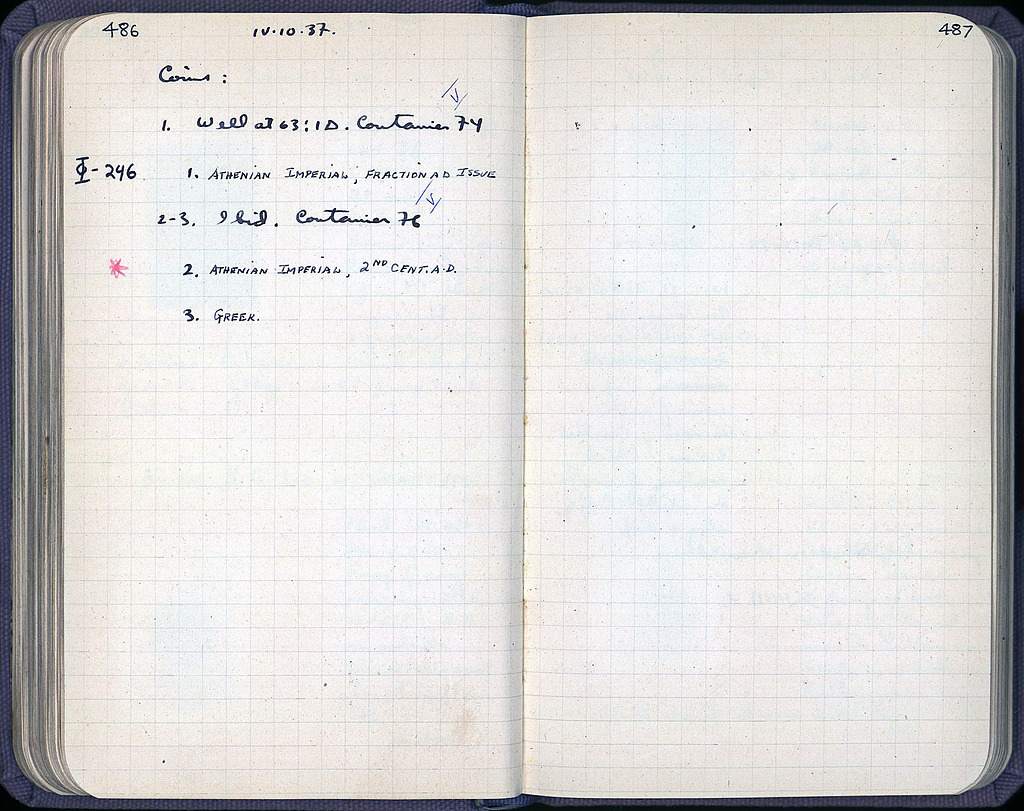 486
IV·10·37.
Coins :
V
1. Well at 63:1Δ. Container 74
Φ-246 1. ATHENIAN IMPERIAL, FRACTIONAL ISSUE
V
2-3. Ibid. Container 76
* 2. ATHENIAN IMPERIAL, 2ND CENT. A.D.
3. GREEK.
487